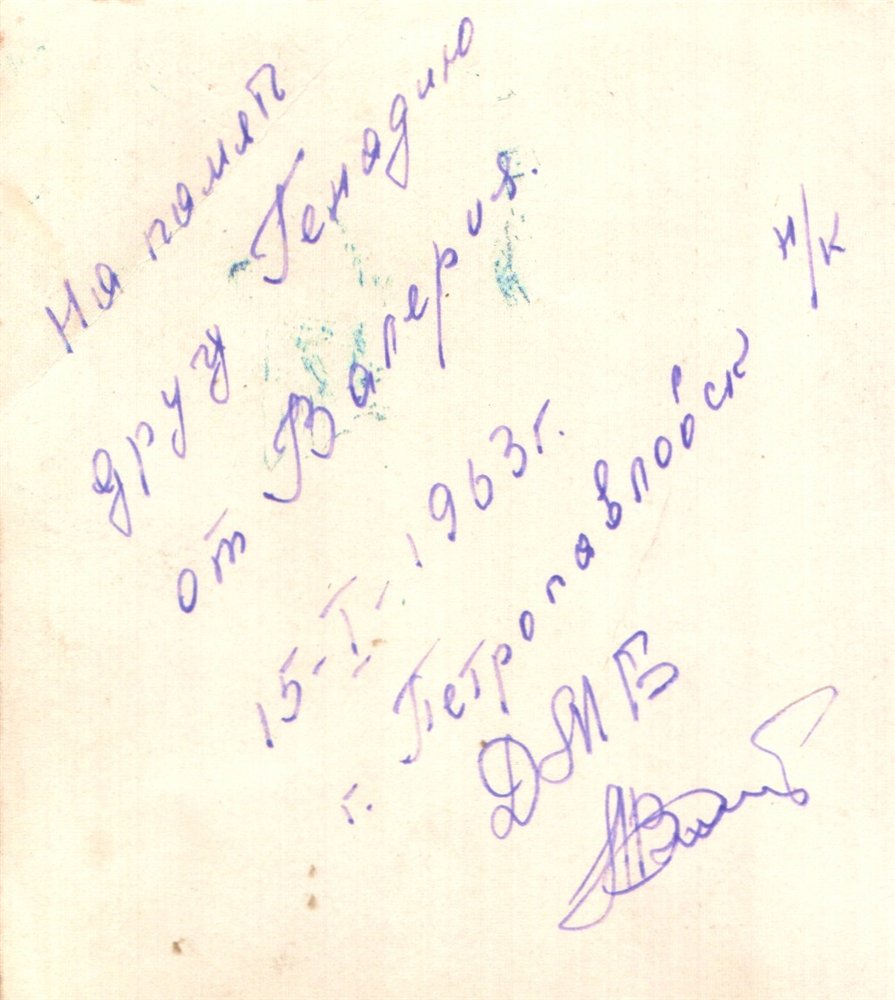 На памят
другу Генадию
от Валерия.
15-I-1963г.
г. Петропавловск н/к
ДМБ